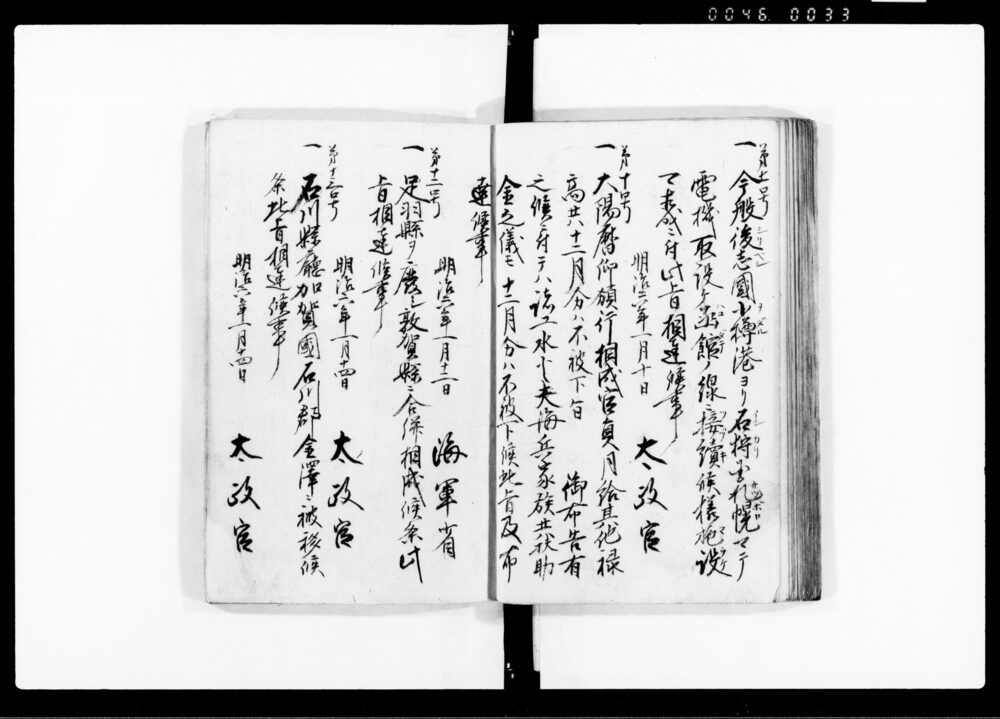 0046 0033
第十一号
一 今般後志國小樽港ヨリ石狩國札幌マテ
シリベシ ヲタル イシカリ サツホロ
電機取設ケ函館ノ線ニ接続候様施設
ハコダテ
可致候ニ付此旨相達候事
明治六年一月十日 太政官
第十号
一 大陽暦御頒行相成官員月給其他禄
高共十二月分ハ不被下旨 御布告有
之候ニ付テハ諸工水火夫海兵家族共扶助
金之儀モ十二月分ハ不被下候此旨及布
達候事
明治六年一月十二日 海軍省
第十二号
一 足羽縣ヲ廃シ敦賀縣ニ合併相成候条此
旨相達候事
明治六年一月十四日 太政官
第十三号
一 石川縣廳加賀國石川郡金澤ニ被移候
条此旨相達候事
明治六年一月十四日 太政官